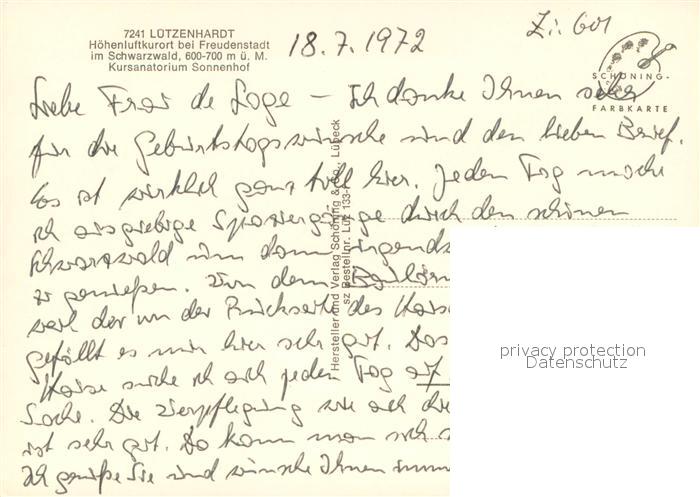 7241 LÜTZENHARDT
Höhenluftkurort bei Freudenstadt
im Schwarzwald, 600-700 m ü. M.
Kursanatorium Sonnenhof
18.7.1972
Zi. 601
SCHÖNING-
FARBKARTE
Liebe Frau de Loge – Ich danke Ihnen sehr
für die Geburtstagswünsche und den lieben Brief.
Es ist wirklich ganz toll hier. Jeden Tag mache
ich ausgiebige Spaziergänge durch den schönen
Schwarzwald um dann irgends
zu genießen. Von dem
weil der an der Rückseite des Hause
gefällt es mir hier sehr gut. Das
suche ich auch jeden Tag auf
Sache. Die Verpflegung wie auch die
ist sehr gut. Da kann man sich
Ich grüße Sie und wünsche Ihnen imm
Hersteller und Verlag Schöning & Co., Lübeck
sz Bestellnr. Lüt 133-
privacy protection
Datenschutz